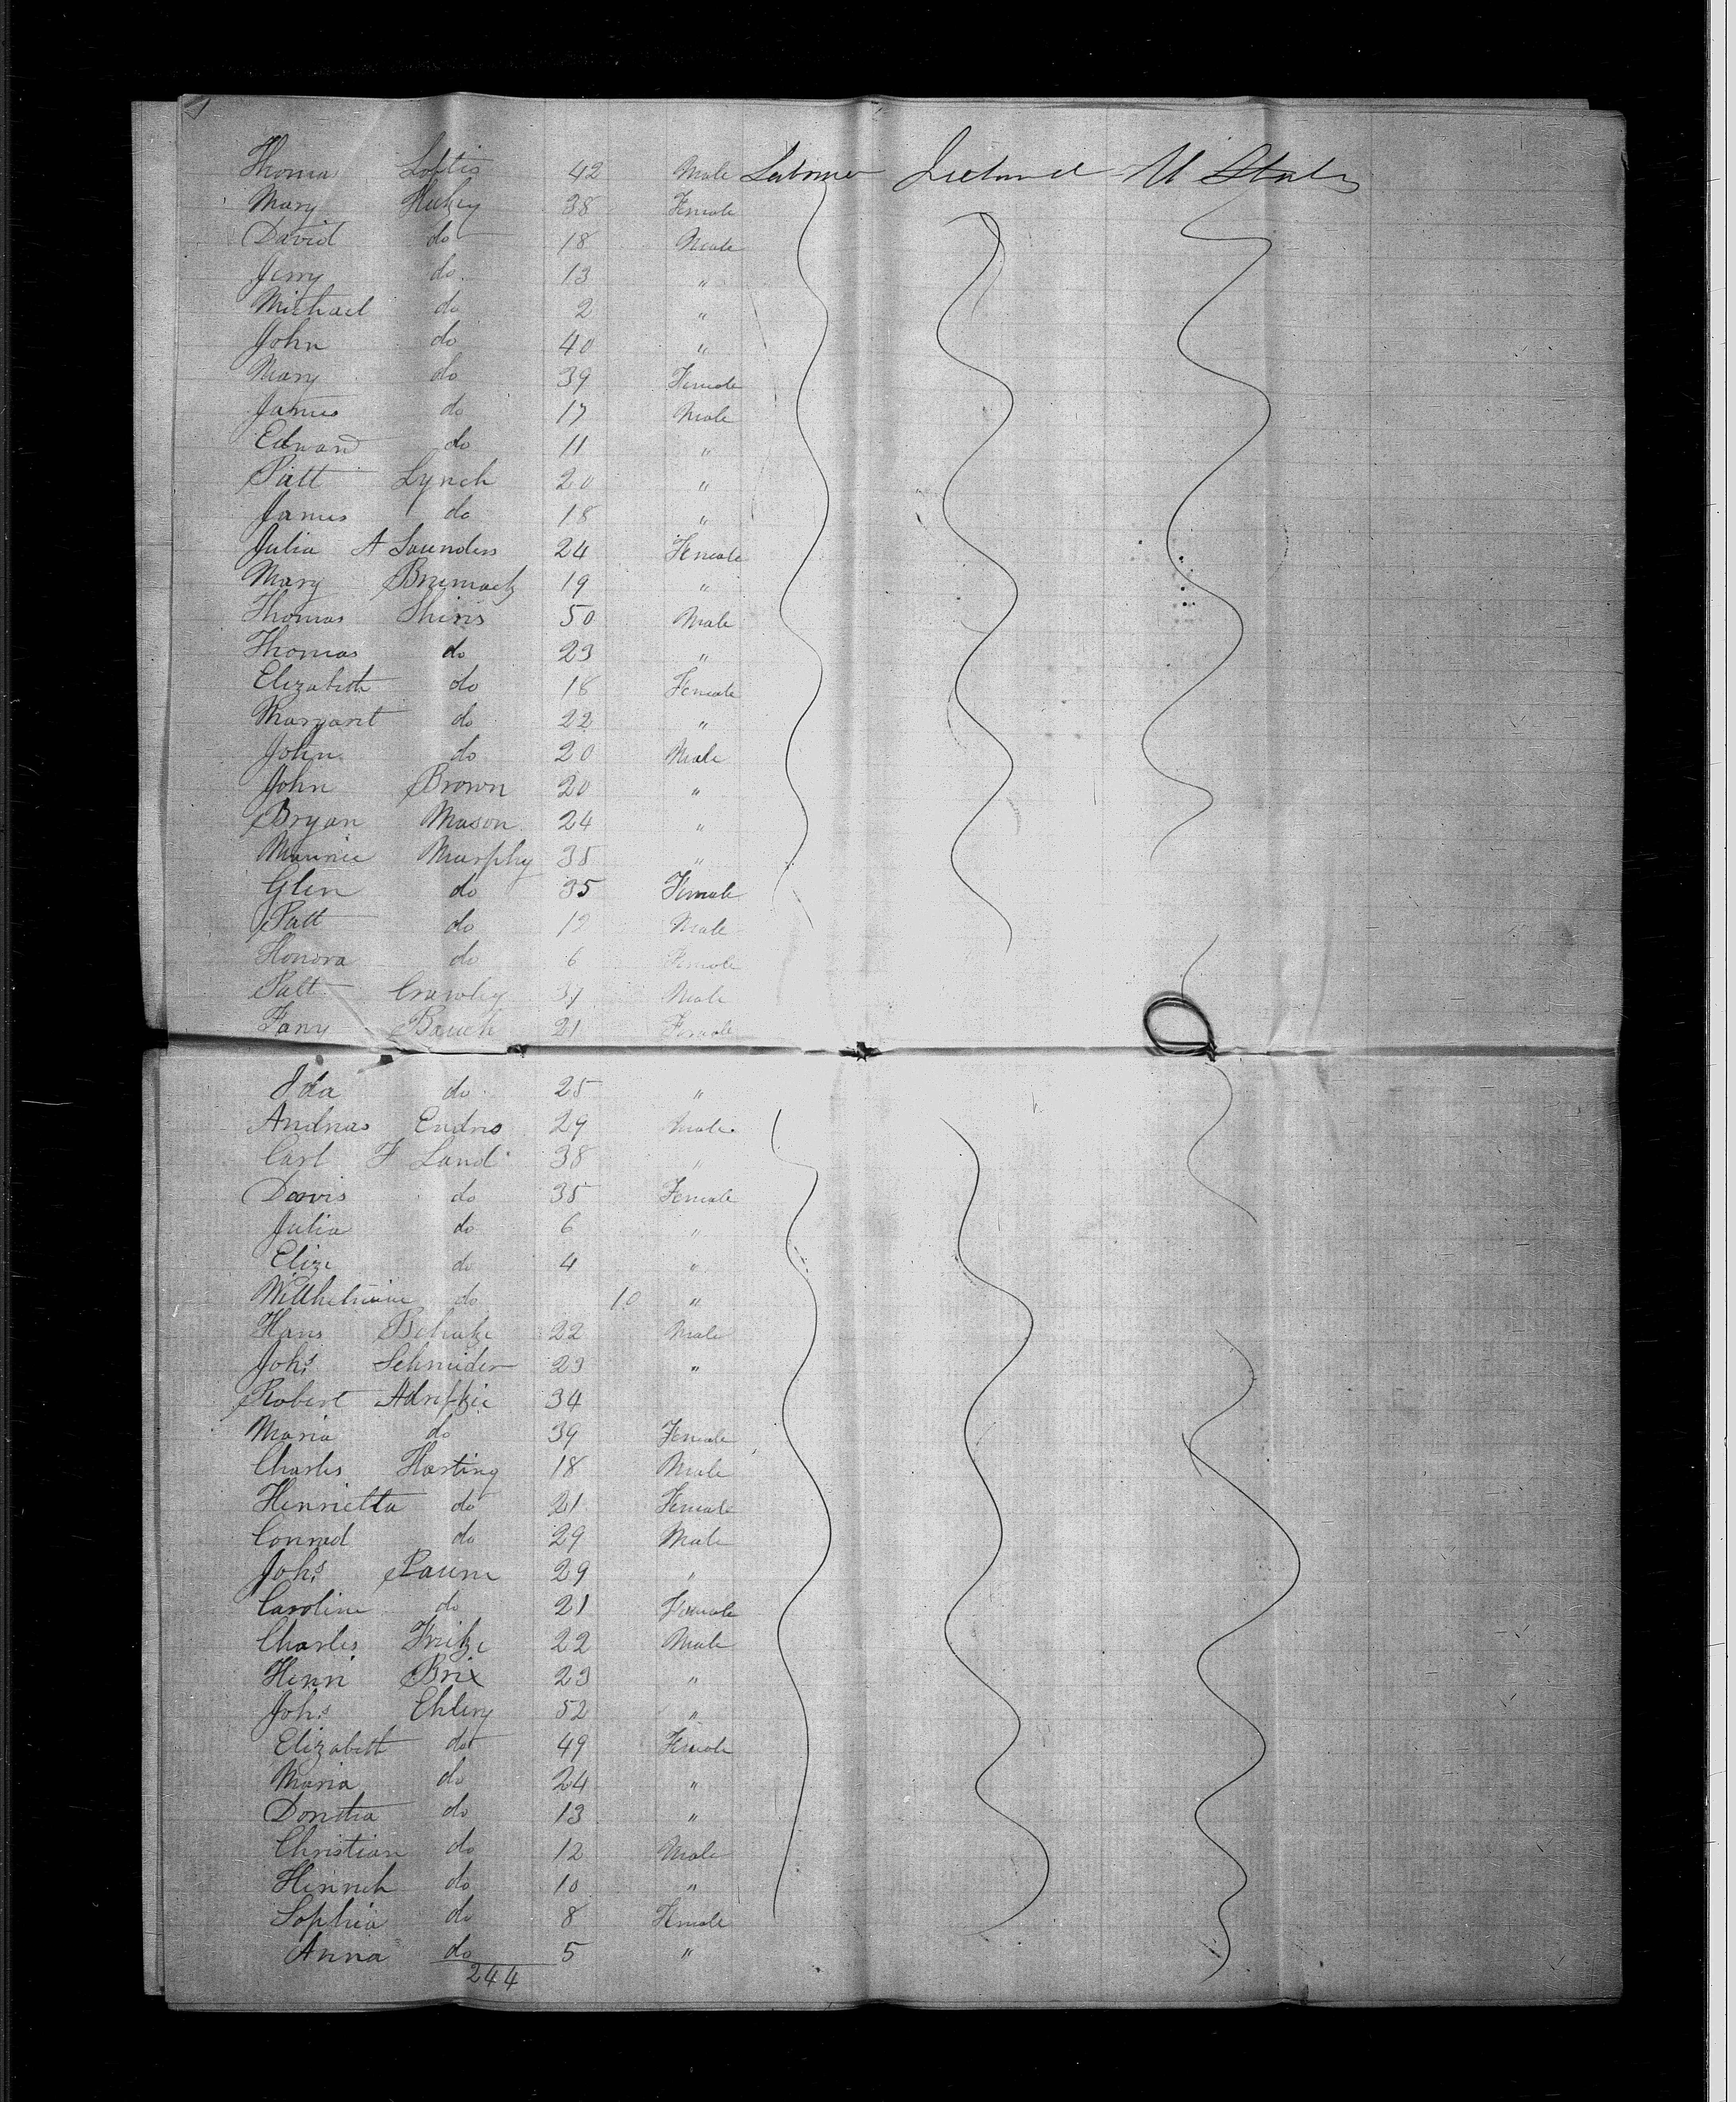 Thomas Loftis 42 Male Laborer Ireland U States
Mary Hickey 38 Female
David do 18 Male
Jerry do 13 "
Michael do 2 "
John do 40 "
Mary do 39 Female
James do 17 Male
Edward do 11 "
Patt Lynch 20 "
James do 18 "
Julia A Saunders 24 Female
Mary 19 "
Thomas Shins 50 Male
Thomas do 23 "
Elizabeth do 18 Female
Margaret do 22 "
John do 20 Male
John Brown 20 "
Bryan Mason 24 "
Maurice Murphy 35 "
Glen do 35 Female
Patt do 12 Male
Honora do 6 Female
Patt Crowley 37 Male
Fany Bauch 21 Female
Ida do 25 "
Andreas Endres 29 Male
Carl F Land 38 "
Davis do 35 Female
Julia do 6 "
Elize do 4 "
Willhelmine do 10 "
Hans 22 Male
Johs Schneider 23 "
Robert 34
Maria do 39 Female
Charles Harting 18 Male
Henrietta do 21 Female
Conrad do 29 Male
Johs Paum 29 "
Caroline do 21 Female
Charles Fritze 22 Male
Henri Brix 23 "
Johs Ehlery 52 "
Elizabeth do 49 Female
Maria do 24 "
Doretha do 13 "
Christian do 12 Male
Hinrich do 10 "
Sophia do 8 Female
Anna do 5 "
244